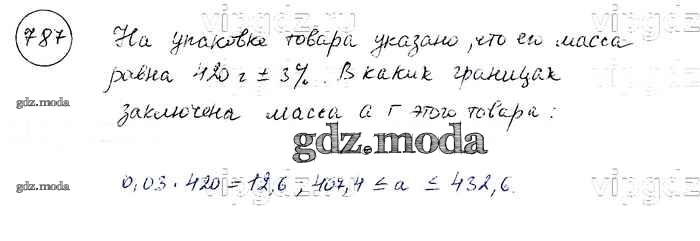 vipgdz.ru
787 На упаковке товара указано, что его масса
равна 420 г ± 3%. В каких границах
gdz.moda
заключена масса а г этого товара:
gdz.moda
gdz.moda
0,03 · 420 = 12,6 ; 407,4 ≤ a ≤ 432,6.
vipgdz
gdz.moda